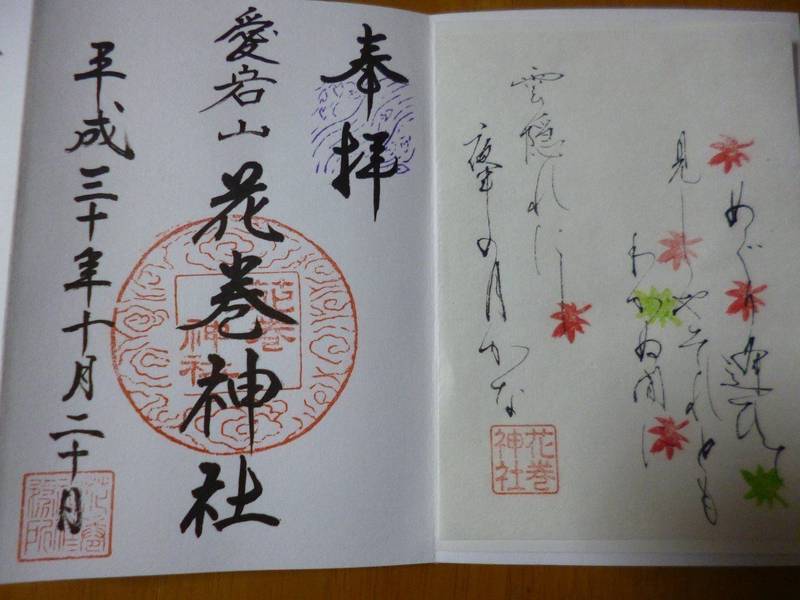 めぐり逢ひて
見しやそれとも
わかぬ間に
雲隠れにし
夜半の月かな
花巻
神社
奉拝
愛宕山花巻神社
花巻
神社
平成三十年十月二十日